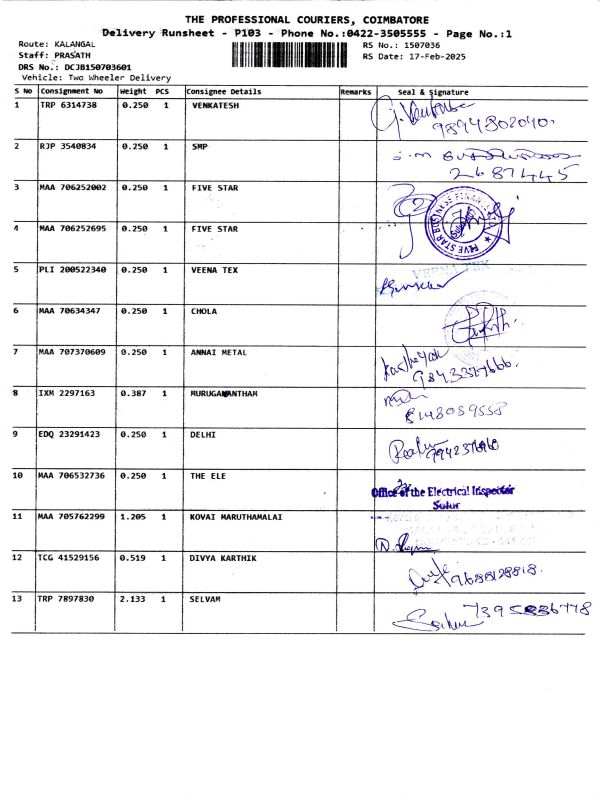 THE PROFESSIONAL COURIERS, COIMBATORE
Delivery Runsheet - P103 - Phone No.:0422-3505555 - Page No.:1
Route: KALANGAL RS No.: 1507036
Staff: PRASATH RS Date: 17-Feb-2025
DRS No.: DCJB150703601
Vehicle: Two Wheeler Delivery
S No Consignment No Weight PCS Consignee Details Remarks Seal & Signature
1 TRP 6314738 0.250 1 VENKATESH
9894302040.
2 RJP 3540834 0.250 1 SMP
2687445
3 MAA 706252002 0.250 1 FIVE STAR
4 MAA 706252695 0.250 1 FIVE STAR
FIVE STAR BUSINESS FINANCE
5 PLI 200522340 0.250 1 VEENA TEX
VEENA TEX
6 MAA 70634347 0.250 1 CHOLA
7 MAA 707370609 0.250 1 ANNAI METAL
8 IXM 2297163 0.387 1
8148089558
9 EDQ 23291423 0.250 1 DELHI
10 MAA 706532736 0.250 1 THE ELE
Office of the Electrical Inspector
Sulur
11 MAA 705762299 1.205 1 KOVAI MARUTHAMALAI
12 TCG 41529156 0.519 1 DIVYA KARTHIK
9688128818.
13 TRP 7897830 2.133 1 SELVAM